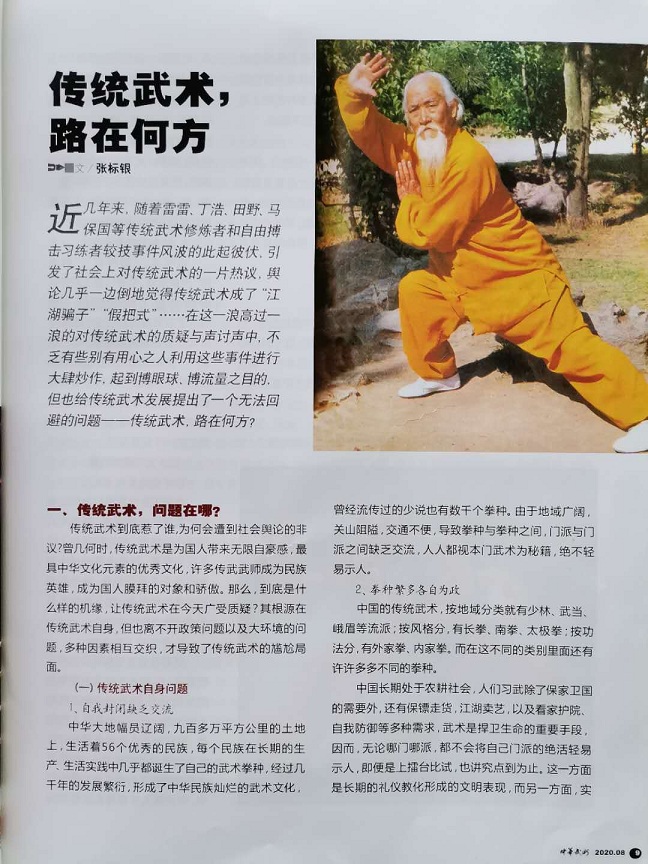 传统武术，
路在何方
文／张标银
近几年来，随着雷雷、丁浩、田野、马
保国等传统武术修炼者和自由搏
击习练者较技事件风波的此起彼伏，引
发了社会上对传统武术的一片热议，舆
论几乎一边倒地觉得传统武术成了“江
湖骗子”“假把式”……在这一浪高过一
浪的对传统武术的质疑与声讨声中，不
乏有些别有用心之人利用这些事件进行
大肆炒作，起到博眼球、博流量之目的，
但也给传统武术发展提出了一个无法回
避的问题——传统武术，路在何方？
一、传统武术，问题在哪？
传统武术到底惹了谁，为何会遭到社会舆论的非
议？曾几何时，传统武术是为国人带来无限自豪感，最
具中华文化元素的优秀文化，许多传武武师成为民族
英雄，成为国人膜拜的对象和骄傲。那么，到底是什
么样的机缘，让传统武术在今天广受质疑？其根源在
传统武术自身，但也离不开政策问题以及大环境的问
题，多种因素相互交织，才导致了传统武术的尴尬局
面。
（一）传统武术自身问题
1、自我封闭缺乏交流
中华大地幅员辽阔，九百多万平方公里的土地
上，生活着56个优秀的民族，每个民族在长期的生
产、生活实践中几乎都诞生了自己的武术拳种，经过几
千年的发展繁衍，形成了中华民族灿烂的武术文化，
曾经流传过的少说也有数千个拳种。由于地域广阔，
关山阻隘，交通不便，导致拳种与拳种之间，门派与门
派之间缺乏交流，人人都视本门武术为秘籍，绝不轻
易示人。
2、拳种繁多各自为政
中国的传统武术，按地域分类就有少林、武当、
峨眉等流派；按风格分，有长拳、南拳、太极拳；按功
法分，有外家拳、内家拳。而在这不同的类别里面还有
许许多多不同的拳种。
中国长期处于农耕社会，人们习武除了保家卫国
的需要外，还有保镖走货，江湖卖艺，以及看家护院、
自我防御等多种需求，武术是捍卫生命的重要手段，
因而，无论哪门哪派，都不会将自己门派的绝活轻易
示人，即便是上擂台比试，也讲究点到为止。这一方面
是长期的礼仪教化形成的文明表现，而另一方面，实
中华武术 2020.08 9